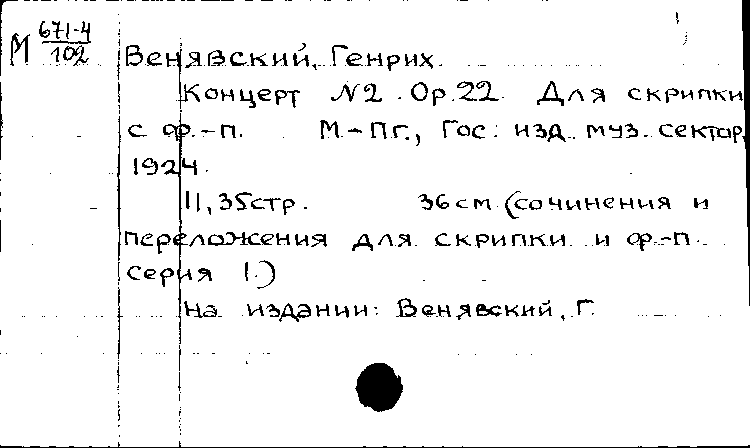 М 671-4/102
Венявский, Генрих.
Концерт №2. Ор.22. Для скрипки
с ф.-п. М.-Пг., Гос. изд. муз. сектор,
1924.
11, 35стр. 36см. (сочинения и
переложения для скрипки и ф.-п.
серия 1.)
На издании: Венявский, Г.